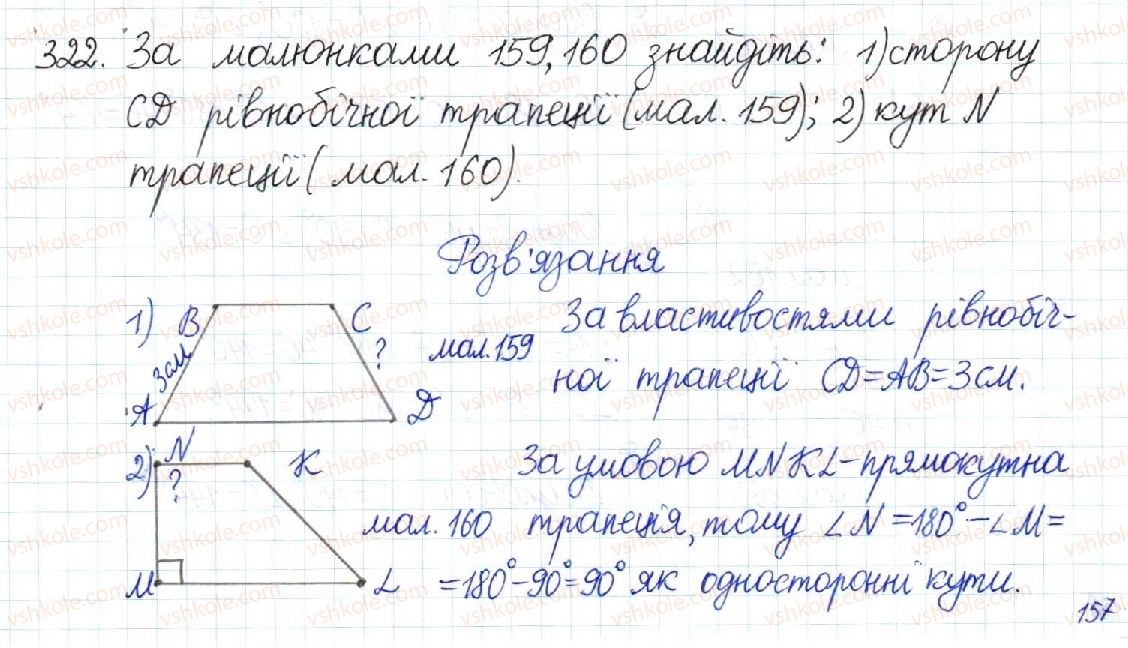 322. За малюнками 159, 160 знайдіть: 1) сторону
CD рівнобічної трапеції (мал. 159); 2) кут N
трапеції (мал. 160).
Розв'язання
1) B C
3см ? мал. 159
A D
За властивостями рівнобіч-
ної трапеції CD=AB=3см.
2) N K
? мал. 160
M L
За умовою MNKL-прямокутна
трапеція, тому ∠N=180°-∠M=
=180°-90°=90° як односторонні кути.
157
vshkole.com